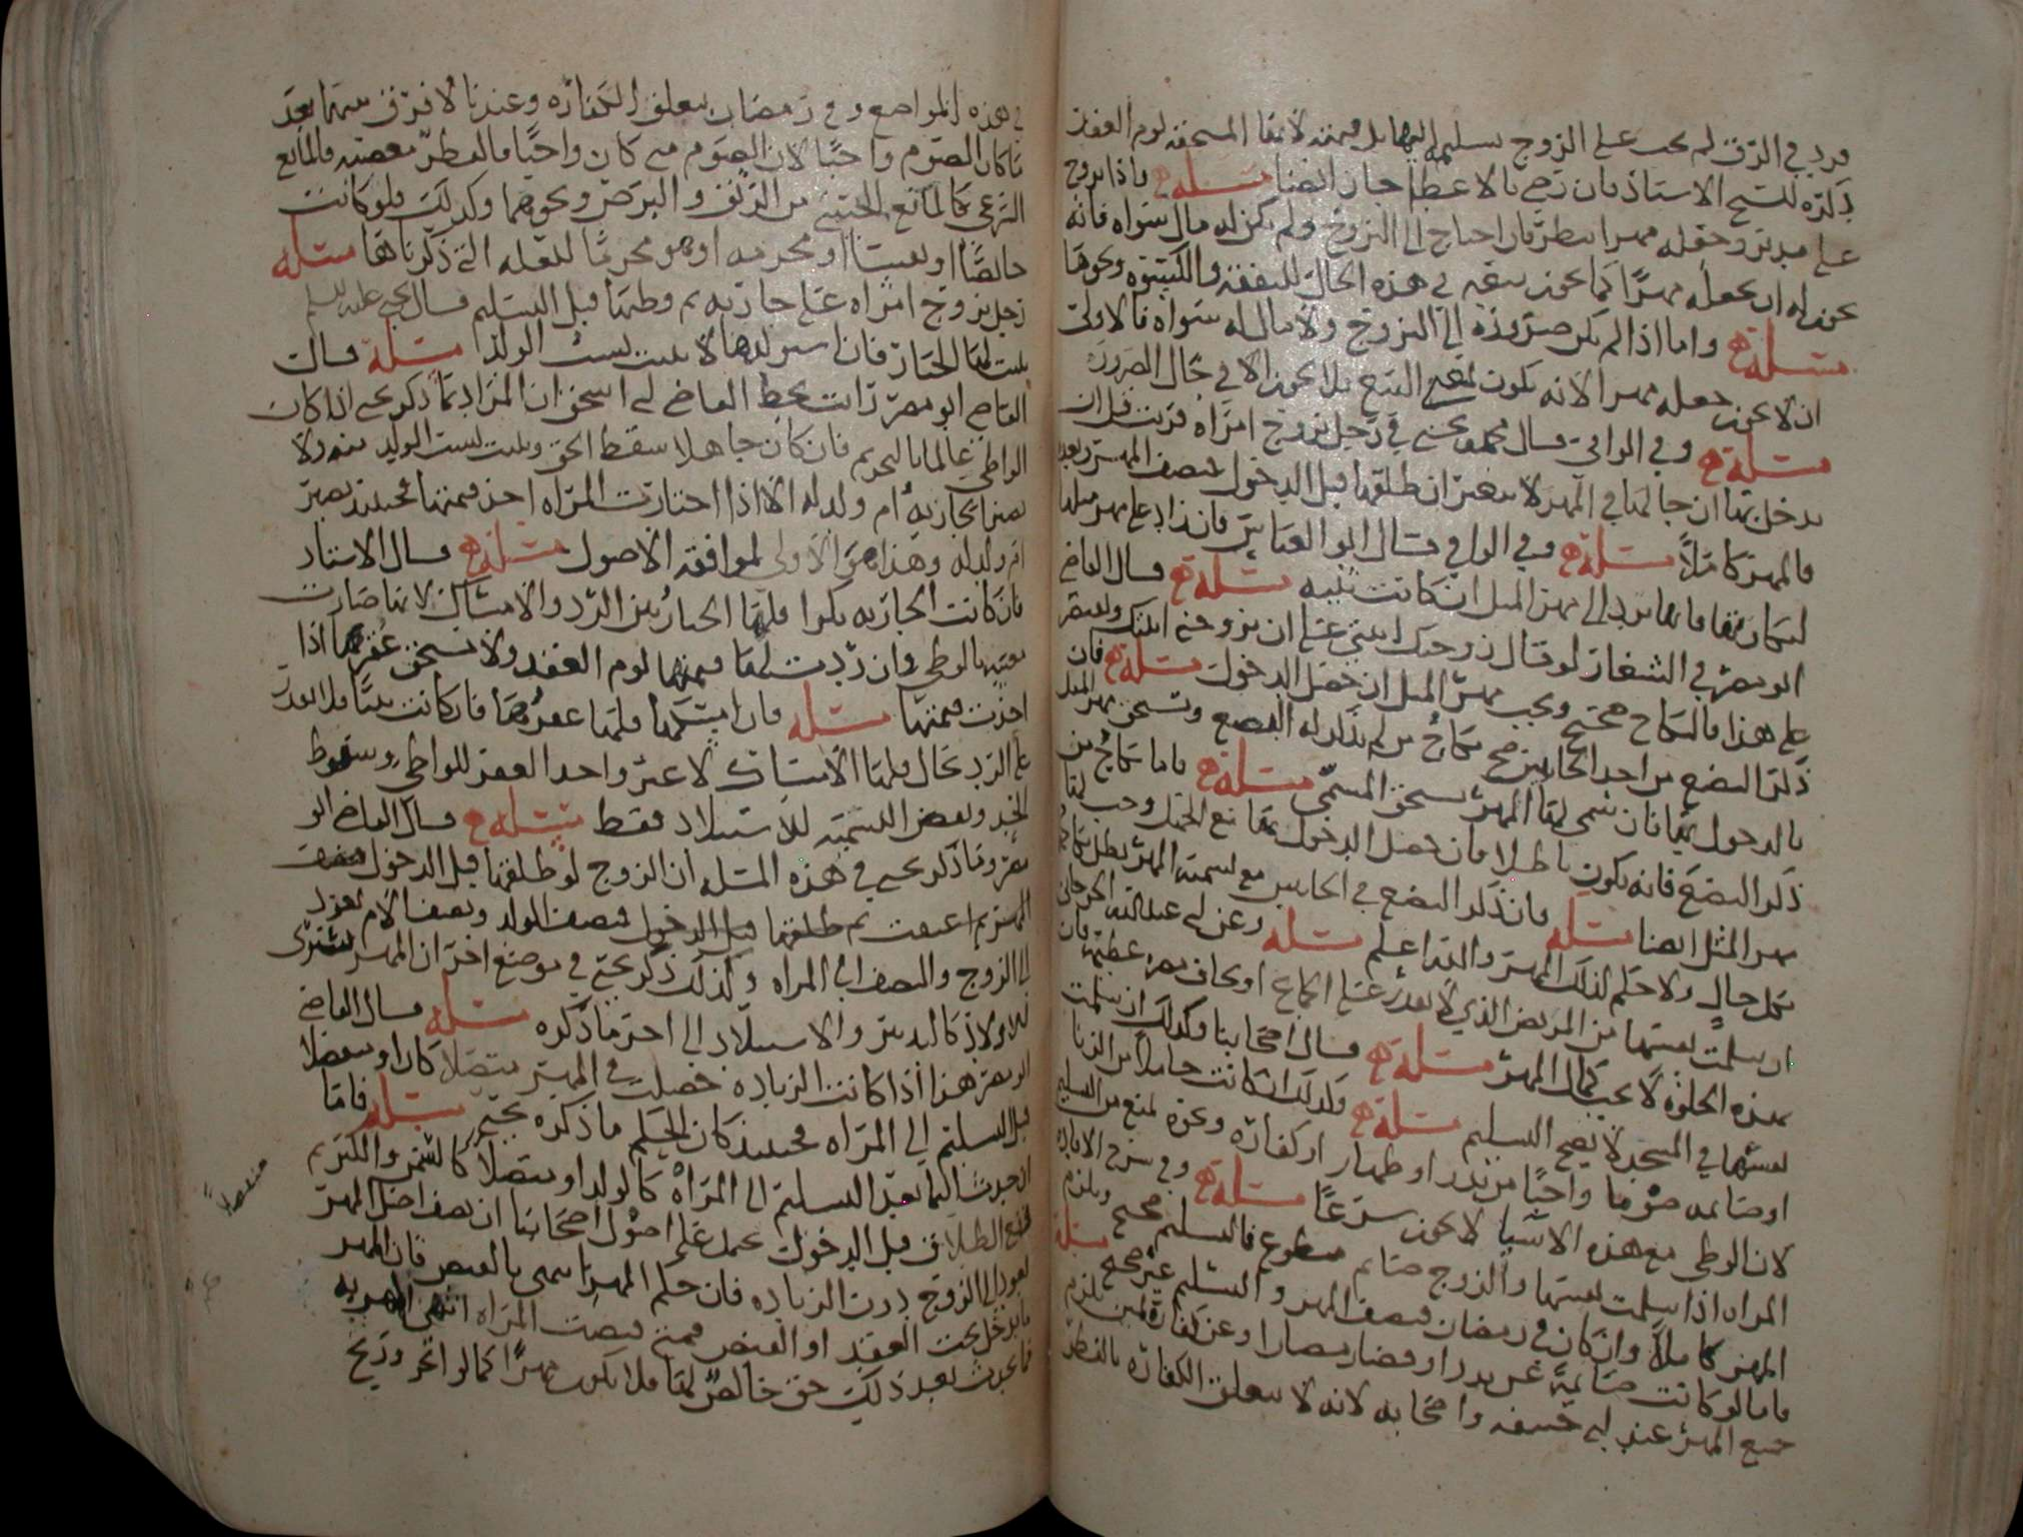 فرد في الرق لم يجب على الزوج تسليمه إليها بل قيمته لأنها المستحقه لوم العقد
ذكره الشيخ الاستاذ فان رضي بالاعطا جاز ايضا مسئلة واذا تزوج
على مدبر وجعله مهرا نظر فان احتاج الى التزوج ولم يكن له مال سواه فانه
يجوز له ان يجعله مهرًا كما يجوز بيعه في هذه الحال للنفقة والكسوة ونحوها
مسئلة واما اذا لم يكن ضرورة الى التزوج ولا مال له سواه فالاولى
ان لا يجوز جعله مهرا لانه يكون بمعنى البيع فلا يجوز الا في حال الضرورة
مسئلة وفي الوافي قال محمد بن يحيى في رجل تزوج امراه فزنت قبل ان
يدخل بها ان حالها في المهر لا يتغير ان طلقها قبل الدخول فنصف المهر وبعد
فالمهر كاملاً مسئلة وفي الوافي قال ابو العباس فان زاد على مهر مثلها
لمكان بها فانها ترد الى مهر المثل ان كانت ثيبه مسئلة قال القاضي
ابو مضر في الشغار لو قال زوجتك ابنتي على ان تزوجني ابنتك ولم يقر
على هذا فالنكاح صحيح ويجب مهر المثل ان حصل الدخول مسئلة فان
ذكر البضع من احد الجانبين صح نكاح من لم يذكر له البضع وتستحق مهر المثل
بالدخول بها فان سمى لها المهر تستحق المسمى مسئلة واما نكاح من
ذكر البضع فانه يكون باطلا فان حصل الدخول بها مع الجهل وجب لها
مهر المثل ايضا مسئلة فان ذكر البضع في الجانبين مع تسمية المهر بطل نكاحهما
بكل حال ولا حكم لذلك المهر والله اعلم مسئلة وعن ابي عبدالله الجرجاني
ان سلمت نفسها من المريض الذي لا يقدر على الجماع او يخاف مهما عظيما فان
بهذه الخلوة لا يجب كمال المهر مسئلة قال اصحابنا وكذلك ان سلمت
نفسها في المسجد لا يصح التسليم مسئلة وكذلك ان كانت حاملاً من الزنا
او صائمه صوما واجبًا من نذر او ظهار او كفارة ونحوه لمنع من التسليم
لان الوطي مع هذه الاشيا لا يجوز شرعًا مسئلة وفي شرح الافاده
المراه اذا سلمت نفسها والزوج صائم متطوع فالتسليم صحيح ويلزم
المهر كاملاً وان كان في رمضان فنصف المهر والتسليم غير صحيح مسئلة
واما لو كانت صائمة عن نذر او قضا رمضان او عن كفارة يمين يلزم
جميع المهر عند ابي حنيفه واصحابه لانه لا يتعلق الكفارة بالفطر
في هذه المواضع وفي رمضان يتعلق الكفاره وعندنا لا فرق بينهما بعد
ما كان الصوم واجبًا لان الصوم متى كان واجبًا فالفطر معصيه فالمانع
الشرعي كالمانع الحسي من الرتق والبرص ونحوهما وكذلك فلو كانت
حائضًا او نفسا او محرمه او هو محرمًا للعله التي ذكرناها مسئله
رجل تزوج امراه على جاريه ثم وطئها قبل التسليم قال يحيى عليه السلم
يثبت لها الخيار فان استولدها لا يثبت نسب الولد مسئلة قالت
القاضي ابو مضر رايت بخط القاضي ابي اسحق ان المراد بما ذكر يحيى اذا كان
الواطي عالما بالتحريم فان كان جاهلا سقط الحق ويثبت نسب الولد منه ولا
تصير الجاريه أم ولد له الا اذا اختارت المراه اخذ قيمتها فحينئذ تصير
ام ولد له وهذا هو الأولى لموافقه الاصول مسئلة قال الاستاد
فان كانت الجاريه بكرا فلها الخيار بين الرد والامساك لانها صارت
معيبه بالوطي وان ردت لها قيمتها لوم العقد ولا تستحق عقرها اذا
اخذت قيمتها مسئله فان امسكها فلها عقرها فان كانت ثيبًا فلا تقدر
على الرد بحال فلها الامساك لا غير واحد العقر للواطي وسقوط
الحد وبعض القيمة للاستيلاد فقط مسئلة قال القاضي ابو
مضر وما ذكر يحيى في هذه المسله ان الزوج لو طلقها قبل الدخول فنصف
المهر ثم اعتقت ثم طلقها قبل الدخول فنصف الولد ونصف الام تعود
الى الزوج والنصف الى المراه وكذلك ذكر يحيى في موضع اخر ان المهر يسترى
للاولاد كالتدبير والاستيلاد الى اخر ما ذكره مسئلة قال القاضي
ابو مضر هذا اذا كانت الزياده حصلت في المهر متصلا كان او منفصلا
قبل التسليم الى المراه فحينئذ كان الحكم ما ذكره يحيى مسئله فاما
الحدث انما بعد التسليم الى المراه كالولد او متصلاً كالسمن والكبر ثم
وقع الطلاق قبل الدخول عمد على اصول اصحابنا ان نصف اصل المهر
يعود الى الزوج دون الزياده فان حكم المهر اسمى بالقبض فان المهر
ما يدخل تحت العقد او القبض فمتى قبضت المراه انتهى المهر به
فما يحدث بعد ذلك حق خالص لها فلا يكون مهرًا كما لو اتجر وربح
منفصلاً